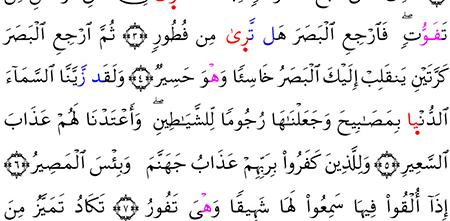 تَفَوُّتٖۖ فَٱرۡجِعِ ٱلۡبَصَرَ هَل تَّرٜىٰ مِن فُطُورٖ ٣ ثُمَّ ٱرۡجِعِ ٱلۡبَصَرَ
كَرَّتَيۡنِ يَنقَلِبۡ إِلَيۡكَ ٱلۡبَصَرُ خَاسِئٗا وَهۡوَ حَسِيرٞ ٤ وَلَقَد زَّيَّنَّا ٱلسَّمَآءَ
ٱلدُّنۡيٜا بِمَصَٰبِيحَ وَجَعَلۡنَٰهَا رُجُومٗا لِّلشَّيَٰطِينِۖ وَأَعۡتَدۡنَا لَهُمۡ عَذَابَ
ٱلسَّعِيرِ ٥ وَلِلَّذِينَ كَفَرُواْ بِرَبِّهِمۡ عَذَابُ جَهَنَّمَۖ وَبِئۡسَ ٱلۡمَصِيرُ ٦
إِذَآ أُلۡقُواْ فِيهَا سَمِعُواْ لَهَا شَهِيقٗا وَهۡيَ تَفُورُ ٧ تَكَادُ تَمَيَّزُ مِنَ